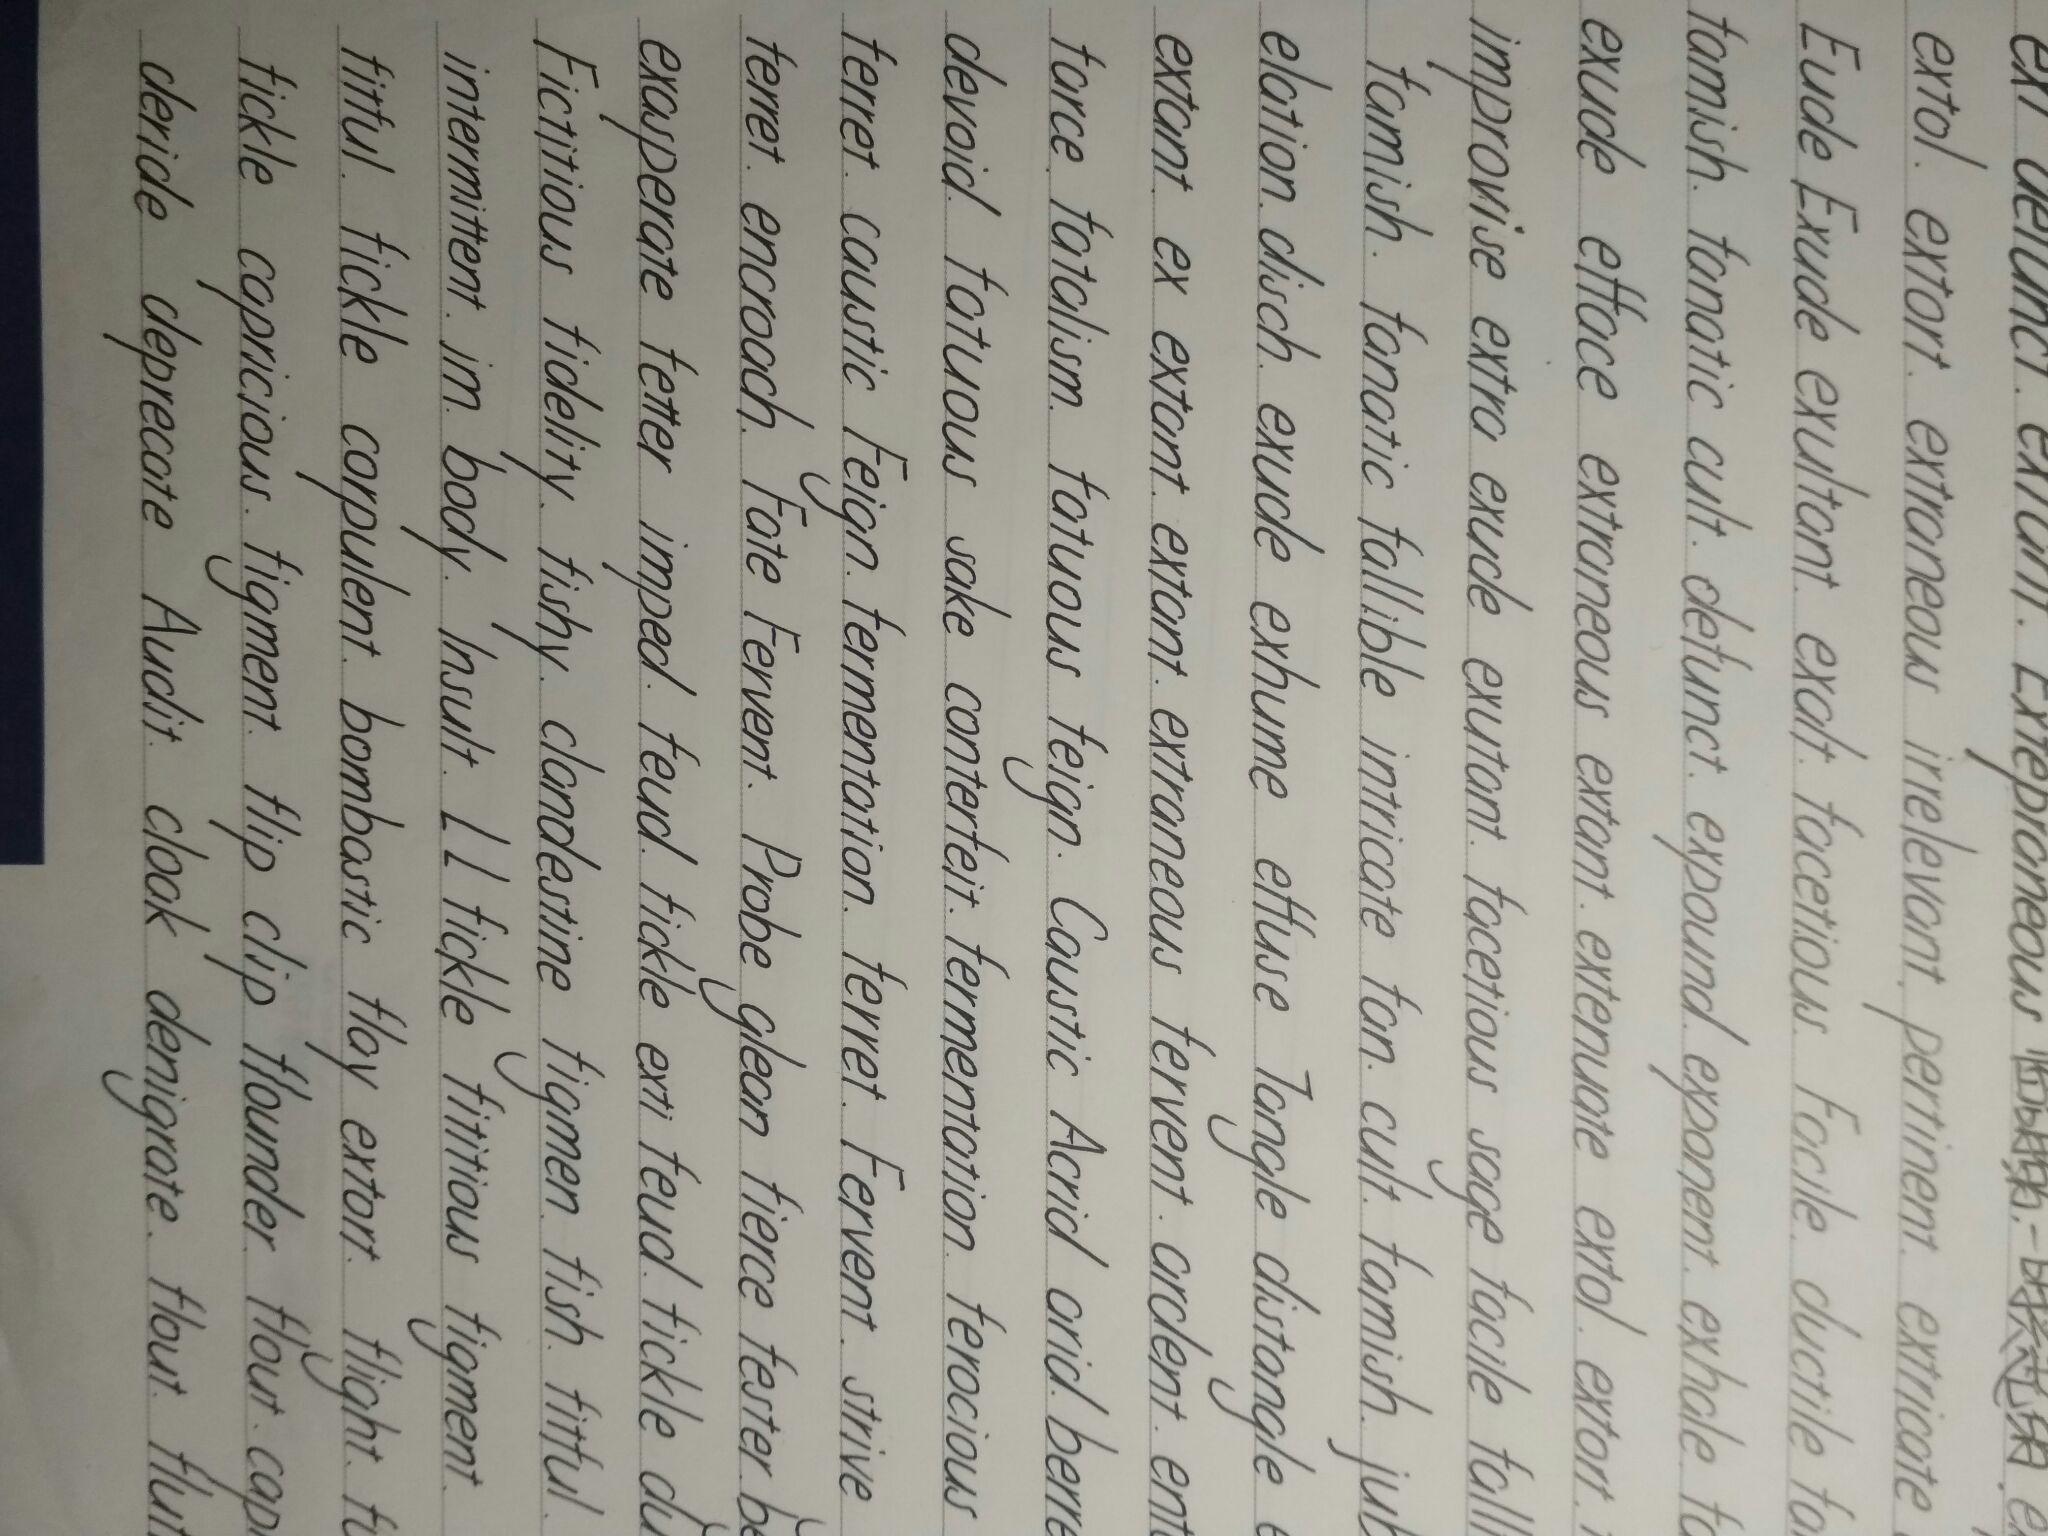 defunct. extant. Extepraneous
extol. extort. extraneous irrelevant. pertinent. extricate
Eude Exude exultant. exalt. facetious. Facile. ductile fa
famish. fanatic cult. defunct. expound. exponent. exhale fa
exude efface extraneous extant. extenuate extol. extort.
improvise extra exude exutant. facetious sage facile falli
famish. fanatic fallible intricate fan. cult. famish. jub
elation. disch. exude exhume effuse Tangle distangle e
extant. ex extant. extant. extraneous fervent. ardent. ent
farce. fatalism. fatuous feign. Caustic Acrid arid. berre
devoid. fatuous sake conterfeit. fermentation. ferocious
ferret. caustic Feign. fermentation. ferret. Fervent. strive
ferret. encroach. Fate Fervent. Probe glean fierce fester. be
exasperate fetter imped. feud. fickle exti feud. fickle du
Fictitious fidelity. fishy. clandestine figmen. fish. fitful.
intermittent. in. body. Insult. L L fickle fititious figment.
fitful. fickle corpulent. bombastic flay extort. flight. fu
fickle capricious. figment. flip clip flounder. flout. capr
deride deprecate Audit. cloak denigrate. flout. flut